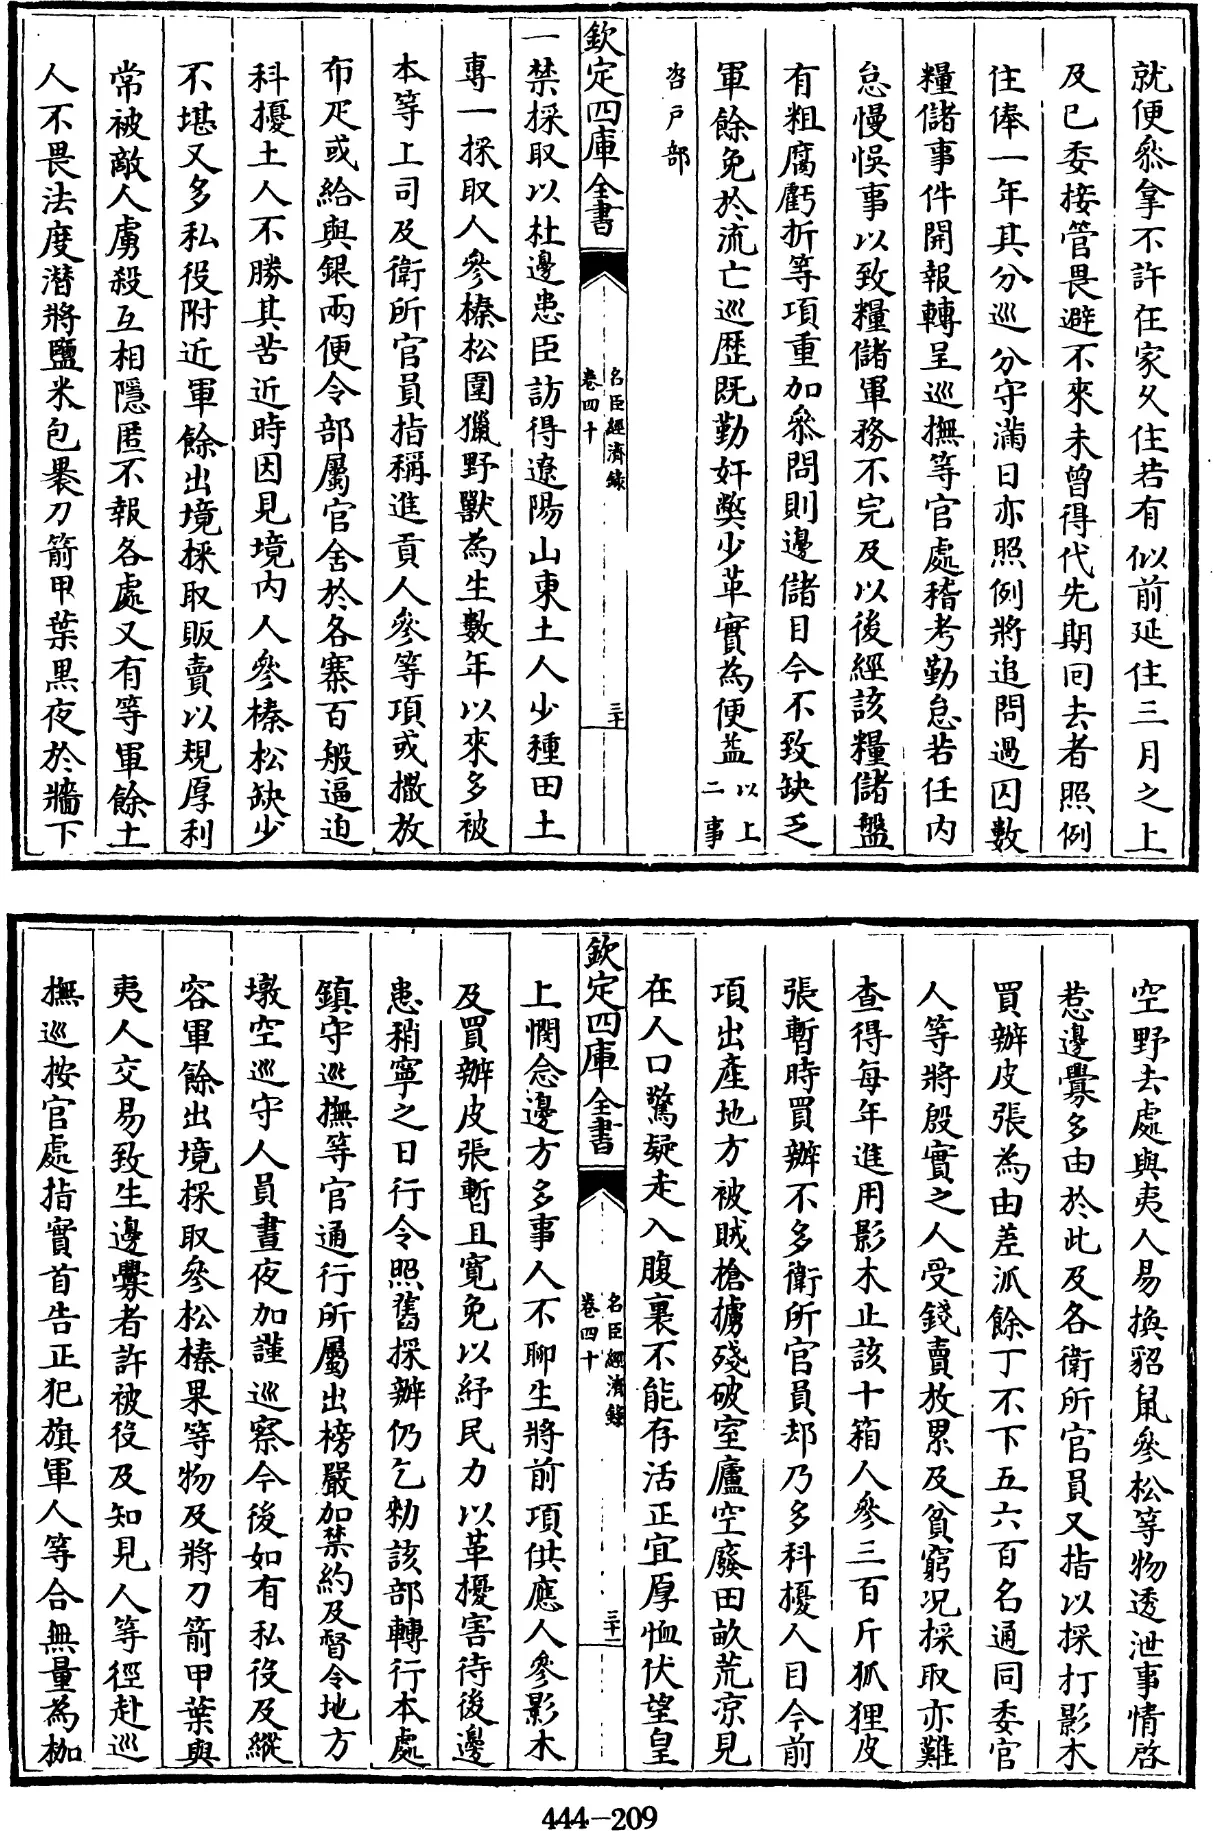 就便叅拿不許在家久住若有似前延住三月之上
及已委接管畏避不來未曽得代先期回去者照例
住俸一年其分巡分守滿日亦照例將追問過囚數
糧儲事件開報轉呈巡撫等官處稽考勤怠若任內
怠慢悞事以致糧儲軍務不完及以後經該糧儲盤
有粗腐虧折等項重加叅問則邊儲目今不致缺乏
軍餘免於流亡巡歴既勤奸弊少革實為便益以上
二事
咨户部
欽定四庫全書
名臣經濟録
卷四十
三十
一禁採取以杜邊患臣訪得遼陽山東土人少種田土
專一採取人參榛松圍獵野獸為生數年以來多被
本等上司及衛所官員指稱進貢人參等項或撒放
布疋或給與銀兩便令部屬官舍於各寨百般逼迫
科擾土人不勝其苦近時因見境內人參榛松缺少
不堪又多私役附近軍餘出境採取販賣以規厚利
常被敵人虜殺互相隱匿不報各處又有等軍餘土
人不畏法度潜將鹽米包褁刀箭甲葉黑夜於牆下
空野去處與夷人易換貂鼠參松等物透泄事情啓
惹邊釁多由於此及各衛所官員又指以採打影木
買辦皮張為由差派餘丁不下五六百名通同委官
人等將殷實之人受錢賣放累及貧窮況採取亦難
查得每年進用影木止該十箱人參三百斤狐狸皮
張暫時買辦不多衛所官員却乃多科擾人目今前
項出產地方被賊槍擄殘破室廬空廢田畝荒凉見
在人口驚疑走入腹裏不能存活正宜厚恤伏望皇
欽定四庫全書
名臣經濟録
卷四十
三十一
上憫念邊方多事人不聊生將前項供應人參影木
及買辦皮張暫且寛免以紓民力以革擾害待後邊
患稍寧之日行令照舊採辦仍乞勑該部轉行本處
鎮守巡撫等官通行所屬出榜嚴加禁約及督令地方
墩空巡守人員晝夜加謹巡察今後如有私役及縱
容軍餘出境採取參松榛果等物及將刀箭甲葉與
夷人交易致生邊釁者許被役及知見人等徑赴巡
撫巡按官處指實首告正犯旗軍人等合無量為枷
444-209